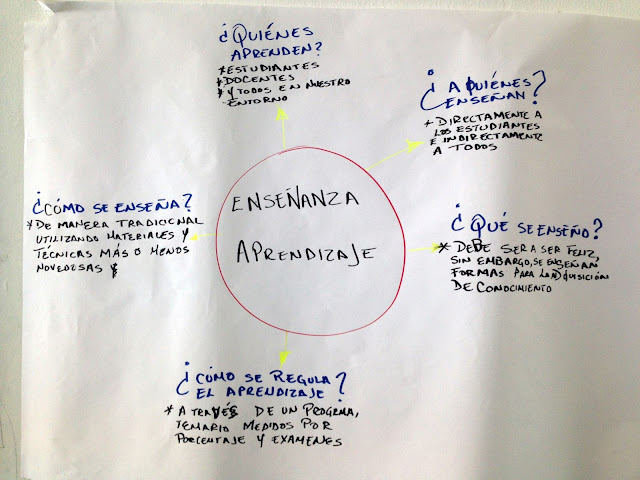 ¿QUIÉNES
APRENDEN?
*ESTUDIANTES
*DOCENTES
*Y TODOS EN NUESTRO
ENTORNO
¿A QUIÉNES
ENSEÑAN?
* DIRECTAMENTE A
LOS ESTUDIANTES
E INDIRECTAMENTE
A TODOS
¿CÓMO SE ENSEÑA?
* DE MANERA TRADICIONAL
UTILIZANDO MATERIALES Y
TÉCNICAS MÁS O MENOS
NOVEDOSAS
ENSEÑANZA
APRENDIZAJE
¿QUÉ SE ENSEÑO?
* DEBE SER A SER FELIZ,
SIN EMBARGO, SE ENSEÑAN
FORMAS PARA LA ADQUISICIÓN
DE CONOCIMIENTO
¿CÓMO SE REGULA
EL APRENDIZAJE?
* A TRAVÉS DE UN PROGRMA,
TEMARIO MEDIDOS POR
PORCENTAJE Y EXAMENES